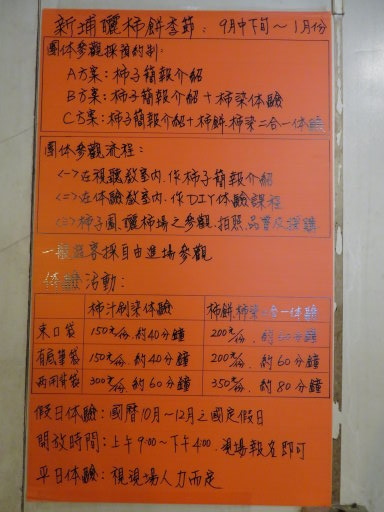 新埔曬柿餅季節：9月中下旬～1月份
團体參觀採預約制：
A方案：柿子簡報介紹
B方案：柿子簡報介紹＋柿染体驗
C方案：柿子簡報介紹＋柿餅柿染二合一体驗
團体參觀流程：
<一>在視聽教室內．作柿子簡報介紹
<二>在体驗教室內．作DIY体驗課程
<三>柿子園、曬柿場之參觀．拍照．品嘗及採購
一般遊客採自由進場參觀
体驗活動：
柿汁刷染体驗 柿餅柿染二合一体驗
束口袋 150元/份．約40分鐘 200元/份．約60分鐘
有底筆袋 150元/份．約40分鐘 200元/份．約60分鐘
両用背袋 300元/份．約60分鐘 350元/份．約80分鐘
假日体驗：國曆10月～12月之國定假日
開放時間：上午9:00～下午4:00．現場報名即可
平日体驗：視現場人力而定